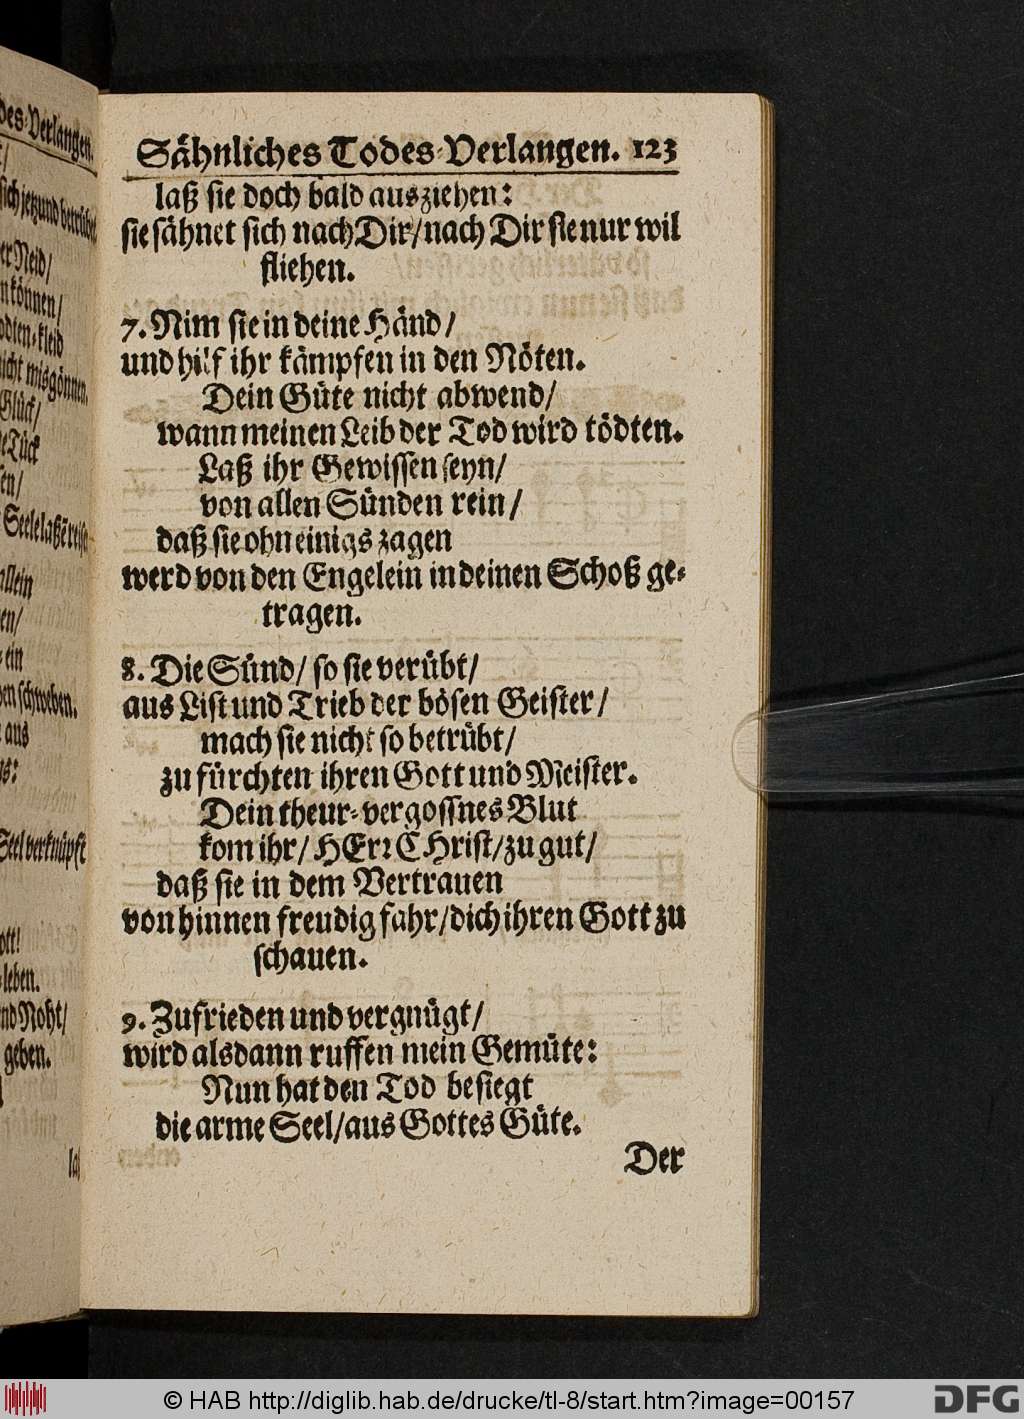 Sähnliches Todes-Verlangen. 123
laß sie doch bald ausziehen:
sie sähnet sich nach Dir/nach Dir sie nur wil
fliehen.
7. Nim sie in deine Händ/
und hilf ihr kämpfen in den Nöten.
Dein Güte nicht abwend/
wann meinen Leib der Tod wird tödten.
Laß ihr Gewissen seyn/
von allen Sünden rein/
daß sie ohn einigs zagen
werd von den Engelein in deinen Schoß ge-
tragen.
8. Die Sünd/ so sie verübt/
aus List und Trieb der bösen Geister/
mach sie nicht so betrübt/
zu fürchten ihren Gott und Meister.
Dein theur-vergossnes Blut
kom ihr/ HErr CHrist/zu gut/
daß sie in dem Vertrauen
von hinnen freudig fahr/dich ihren Gott zu
schauen.
9. Zufrieden und vergnügt/
wird alsdann ruffen mein Gemüte:
Nun hat den Tod besiegt
die arme Seel/aus Gottes Güte.
Der
des-Verlangen.
sich jetzund betrübt
er Neid/
n können/
odten-kleid
nicht misgönnen.
Glück/
Tück
en/
Seele laßẽ reisen
allein
en/
ein
en schweben.
aus
Seel verknüpft
ott!
leben.
nd Noht/
geben.
© HAB http://diglib.hab.de/drucke/tl-8/start.htm?image=00157
DFG